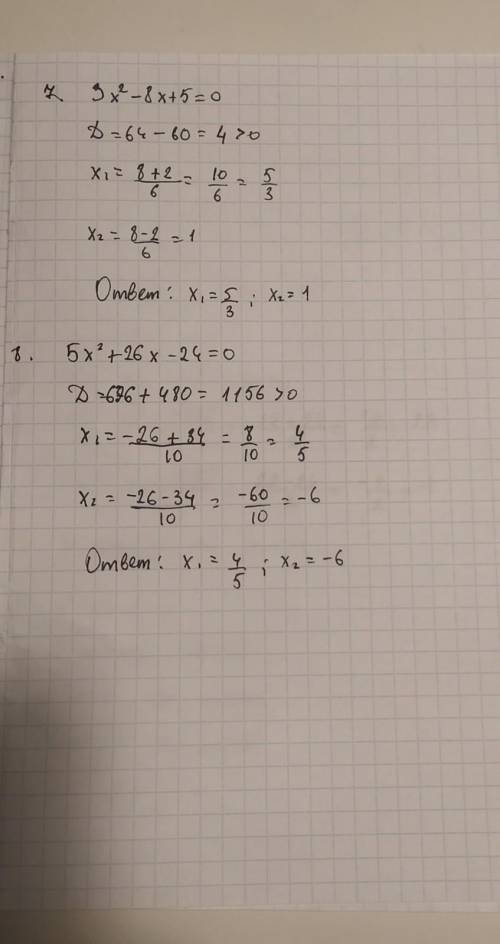 7. 3x² - 8x + 5 = 0
D = 64 - 60 = 4 > 0
x₁ = (8 + 2)/6 = 10/6 = 5/3
x₂ = (8 - 2)/6 = 1
Ответ: x₁ = 5/3 ; x₂ = 1
8. 5x² + 26x - 24 = 0
D = 676 + 480 = 1156 > 0
x₁ = (-26 + 34)/10 = 8/10 = 4/5
x₂ = (-26 - 34)/10 = -60/10 = -6
Ответ: x₁ = 4/5 ; x₂ = -6